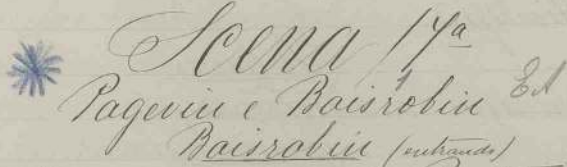 Scena 17ª
Pagevin e Boisrobin
Boisrobin (entrando)